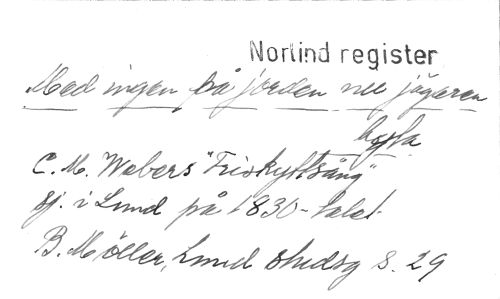 Norlind register
Med ingen på jorden nu jägaren
byta
C. M. Webers "Friskyttsång"
sj. i Lund på 1830-talet
B. Möller, Lund studsg s. 29